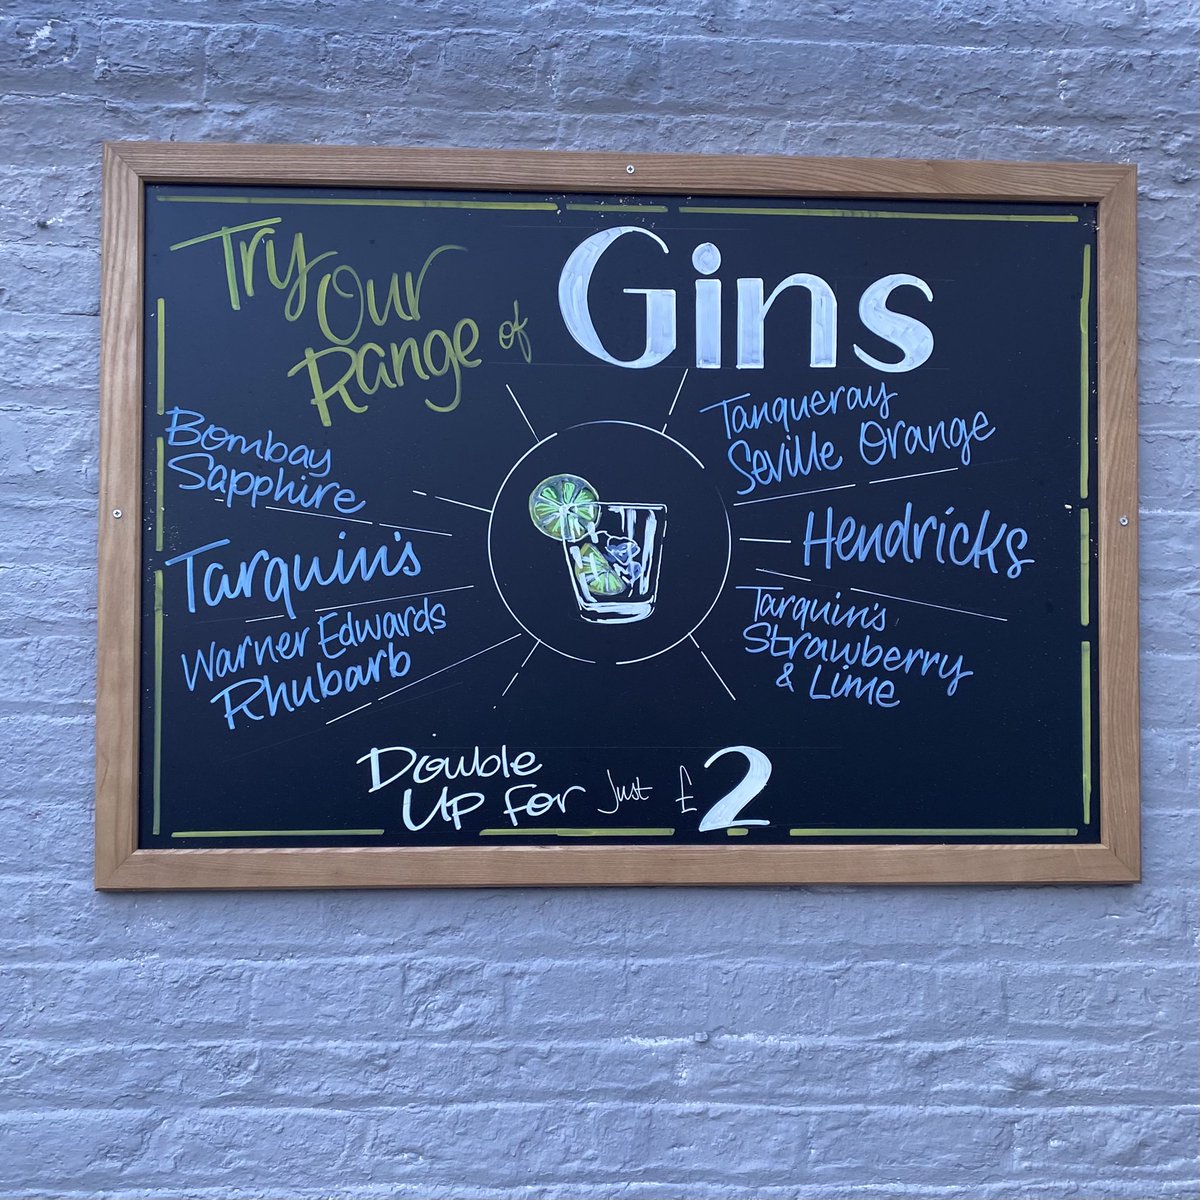 Try
Our
Range of
Gins
Bombay
Sapphire
Tarquin's
Warner Edwards
Rhubarb
Tanqueray
Seville Orange
Hendricks
Tarquin's
Strawberry
& Lime
Double
Up For Just £2